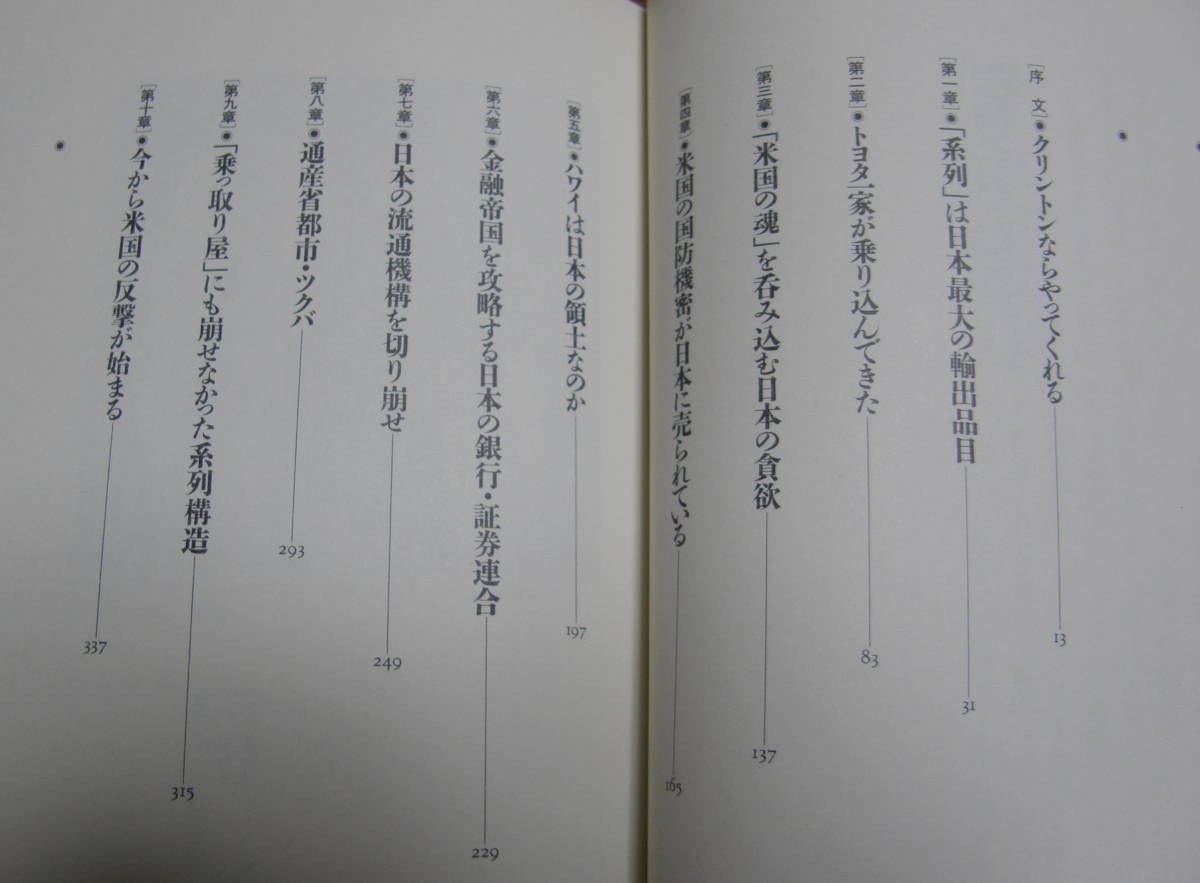 [序 文]●クリントンならやってくれる——13
[第一章]●「系列」は日本最大の輸出品目——31
[第二章]●トヨタ一家が乗り込んできた——83
[第三章]●「米国の魂」を呑み込む日本の貪欲——137
[第四章]●米国の国防機密が日本に売られている——165
[第五章]●ハワイは日本の領土なのか——197
[第六章]●金融帝国を攻略する日本の銀行・証券連合——229
[第七章]●日本の流通機構を切り崩せ——249
[第八章]●通産省都市・ツクバ——293
[第九章]●「乗っ取り屋」にも崩せなかった系列構造——315
[第十章]●今から米国の反撃が始まる——337